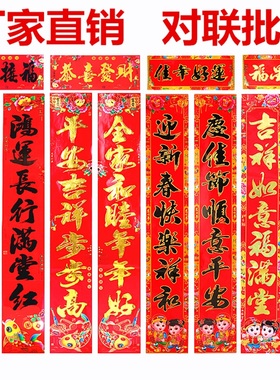 厂家直销 对联批
福
恭喜發財
佳年好運
福
鴻運長行滿堂紅
平安吉祥步步高
全家和睦年年好
迎新春快樂祥和
慶佳節順意平安
吉祥如意福滿堂